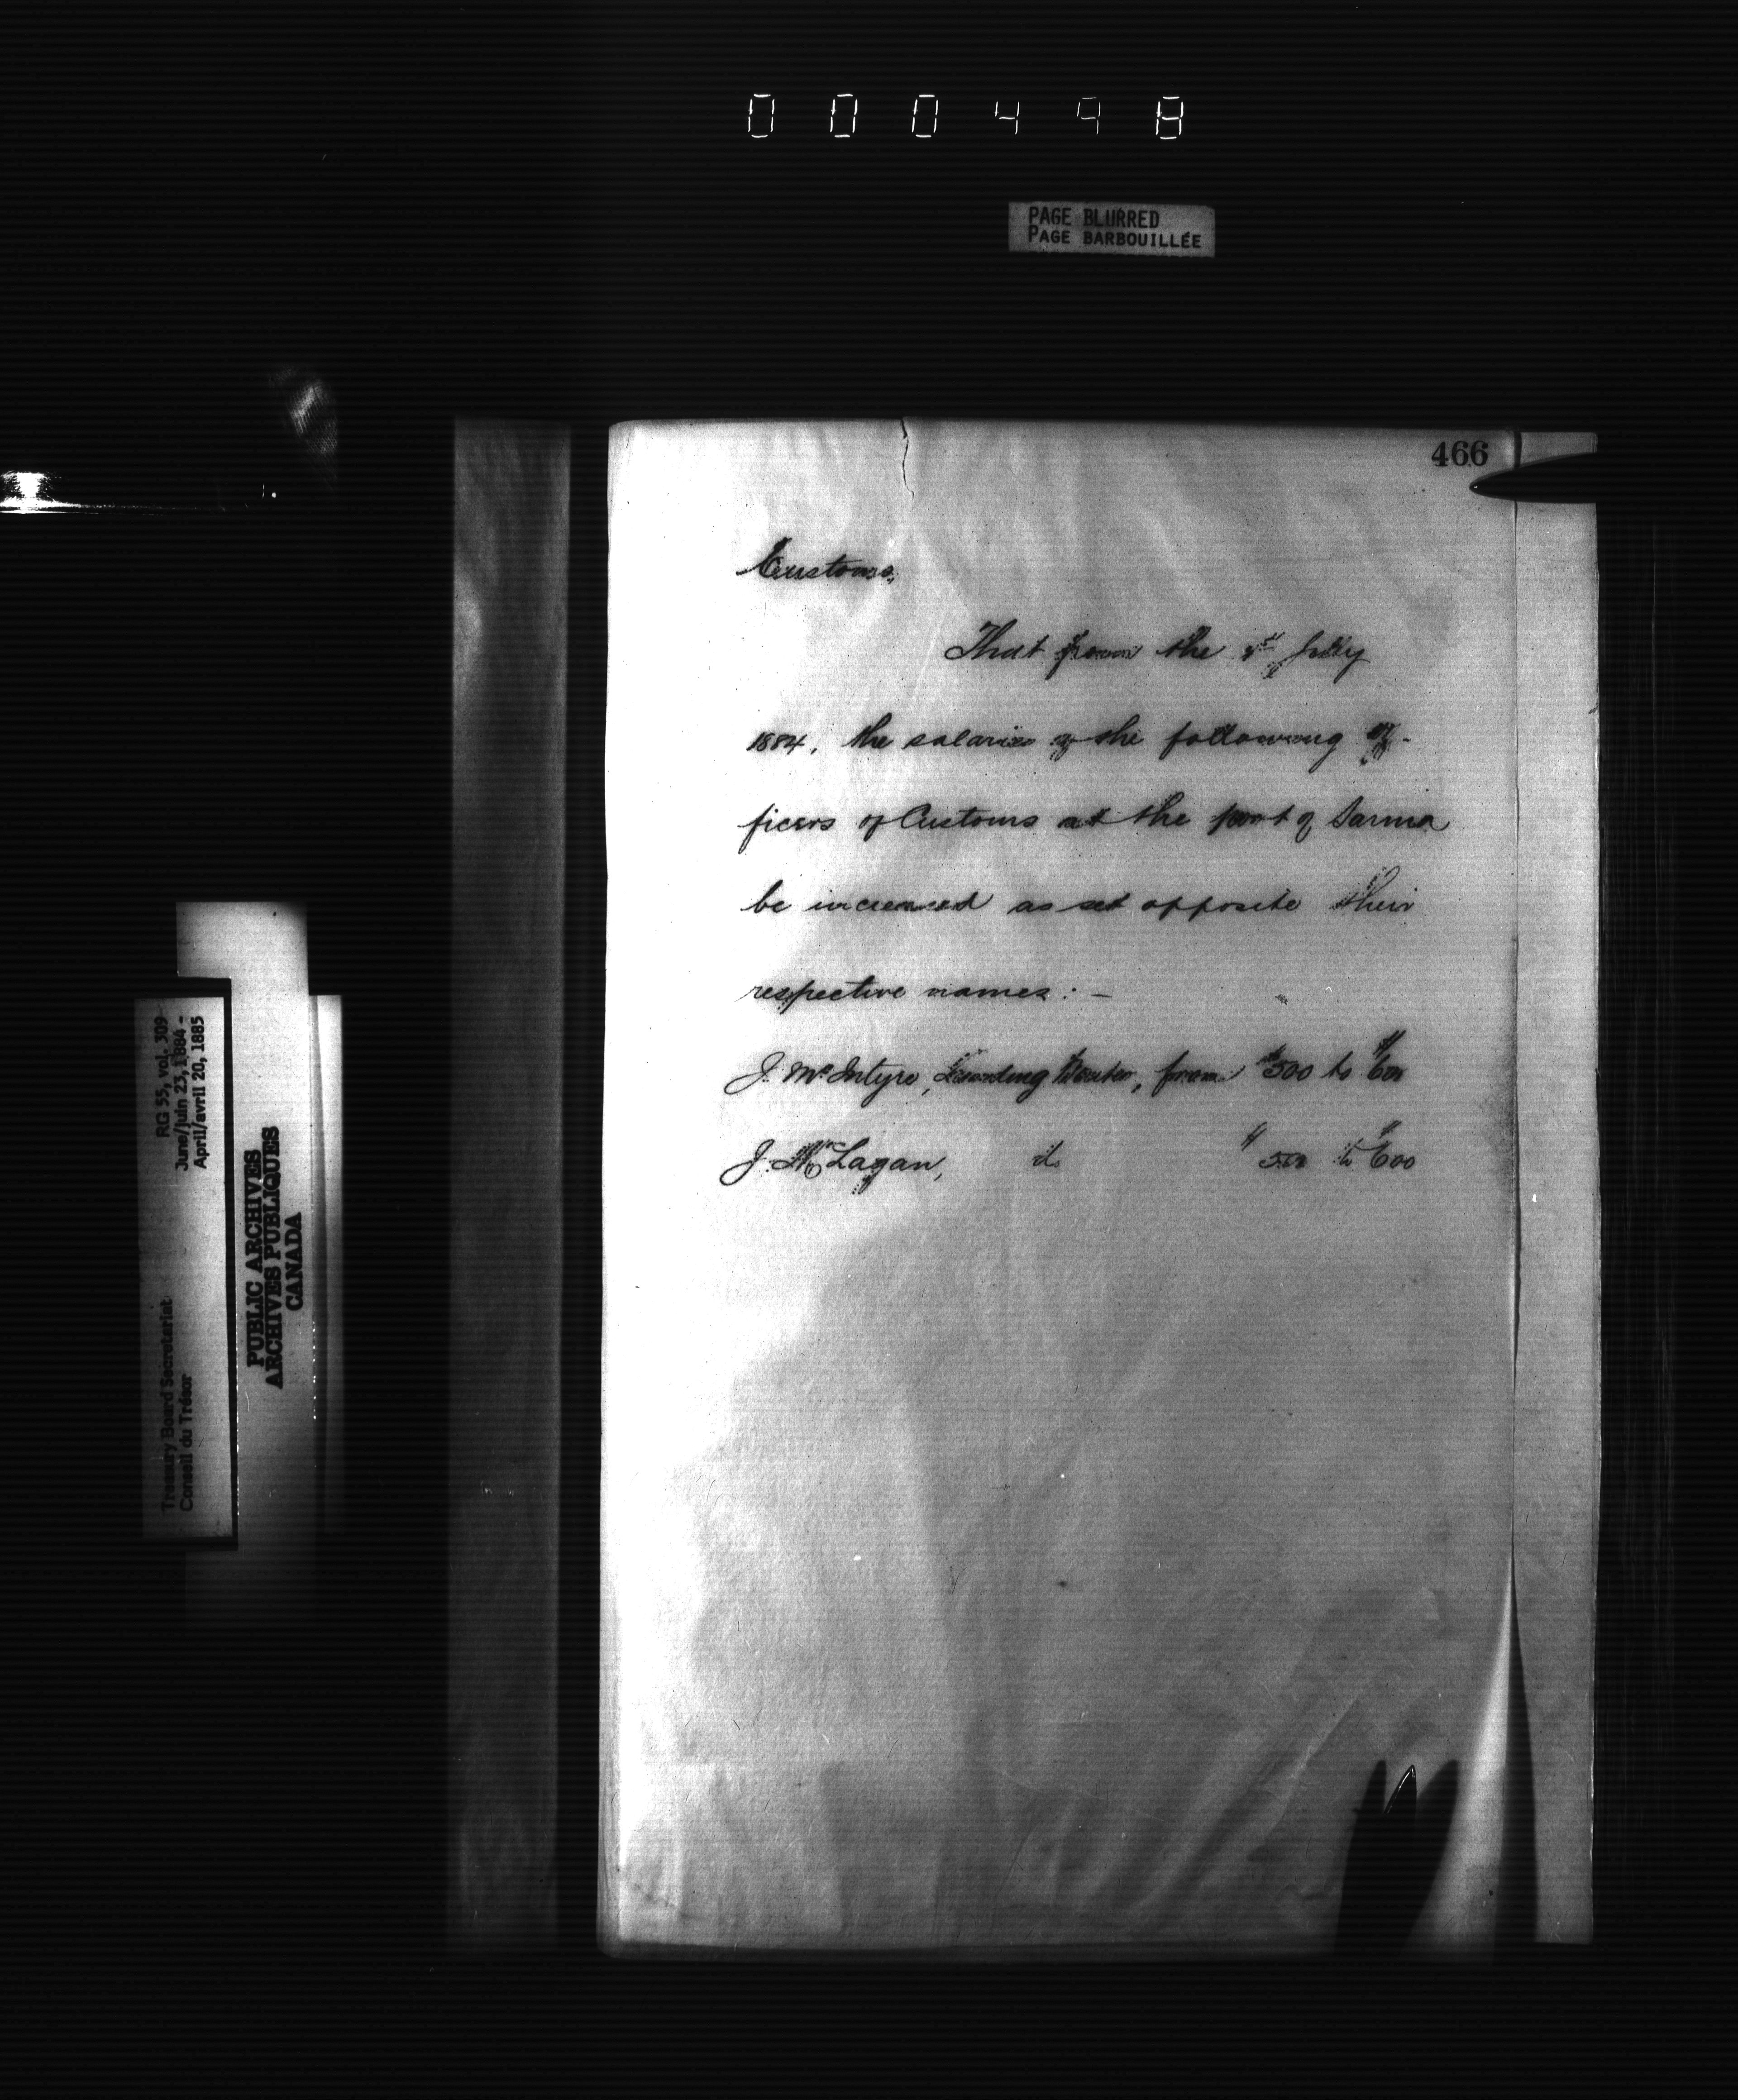 000498
PAGE BLURRED
PAGE BARBOUILLÉE
466
Customs,
That from the 1st July
1884, the salaries of the following of-
ficers of Customs at the port of Sarnia
be increased as set opposite their
respective names: -
J. McIntyre, Landing Waiter, from $500 to $600
J. McLagan, do $500 to $600
RG 55, vol. 309
June/juin 23, 1884 -
April/avril 20, 1885
Treasury Board Secretariat
Conseil du Trésor
PUBLIC ARCHIVES
ARCHIVES PUBLIQUES
CANADA